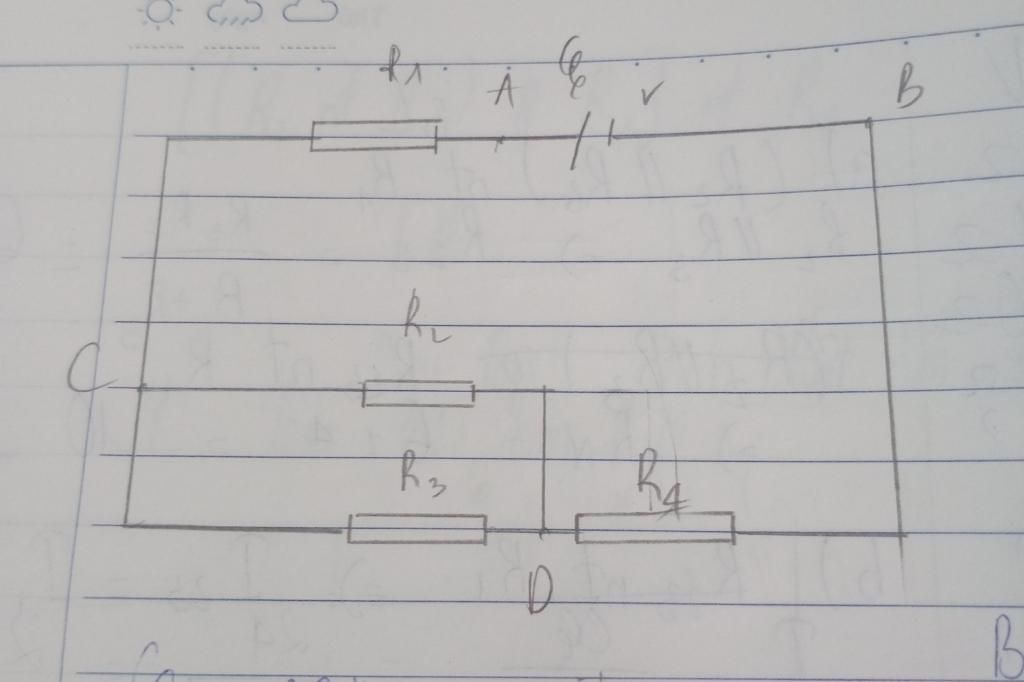 R1 A ℰ r B
R2
C
R3 R4
D
B